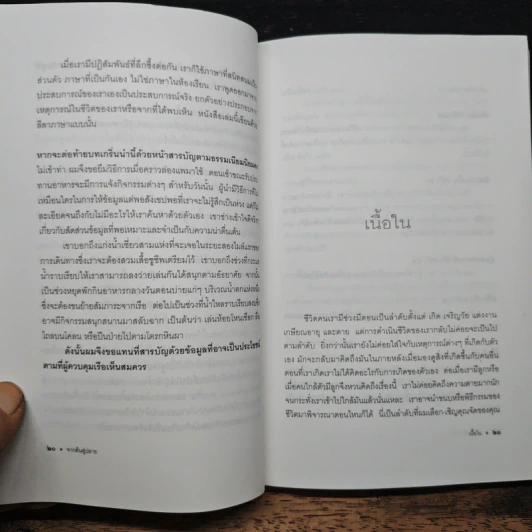 เมื่อเรามีปฏิสัมพันธ์ที่ลึกซึ้งต่อกัน เราก็ใช้ภาษาที่สนิทสนมเป็น
ส่วนตัว ภาษาที่เป็นกันเอง ไม่ใช่ภาษาในห้องเรียน เราพูดออกมาจาก
ประสบการณ์ของเราเองเป็นประสบการณ์จริง ยกตัวอย่างประกอบจาก
เหตุการณ์ในชีวิตของเราหรือจากที่ได้พบเห็น หนังสือเล่มนี้เขียนด้วย
ลีลาภาษาแบบนั้น
หากจะต่อท้ายบทเกริ่นนำนี้ด้วยหน้าสารบัญตามธรรมเนียมนิยมคง
ไม่เข้าท่า ผมจึงขอยืมวิธีการเมื่อคราวล่องแพมาใช้ ตอนเช้าขณะรับประ
ทานอาหารจะมีการแจ้งกิจกรรมต่างๆ สำหรับวันนั้น ผู้นำมีวิธีการที่ไม่
เหมือนใครในการให้ข้อมูลแต่พอสังเขปพอที่เราจะไม่รู้สึกเป็นห่วง แต่ก็ไม่
ละเอียดจนถึงกับไม่มีอะไรให้เราค้นหาด้วยตัวเอง เขาช่างเข้าใจดีจริงๆ
เกี่ยวกับสัดส่วนข้อมูลที่พอเหมาะและจำเป็นกับความน่าตื่นเต้น
เขาบอกถึงแก่งน้ำเชี่ยวสามแห่งที่จะเจอในระยะสองไมล์แรกของ
การเดินทางซึ่งเราจะต้องสวมเสื้อชูชีพเตรียมไว้ เขาบอกถึงช่วงที่กระแส
น้ำราบเรียบให้เราสามารถลงว่ายเล่นกันได้สนุกตามอัธยาศัย จากนั้น
เป็นช่วงหยุดพักกินอาหารกลางวันตอนบ่ายแก่ๆ บริเวณน้ำตกแห่งหนึ่ง
ซึ่งจะต้องขนย้ายสัมภาระจากเรือ ต่อไปเป็นช่วงที่น้ำไหลราบเรียบลงซึ่ง
อาจมีกิจกรรมสนุกสนานมาสลับฉาก เป็นต้นว่า เล่นห้อยโหนเชือก ลื่น
ไถลบนโคลน หรือปีนป่ายไปตามโตรกหินผา
ดังนั้นผมจึงขอแทนที่สารบัญด้วยข้อมูลที่อาจเป็นประโยชน์
ตามที่ผู้ควบคุมเรือเห็นสมควร
๒๐ • จากต้นสู่ปลาย
เนื้อใน
ชีวิตคนเรามีช่วงมีตอนเป็นลำดับตั้งแต่ เกิด เจริญวัย แต่งงาน
เกษียณอายุ และตาย แต่การดำเนินชีวิตของเรากลับไม่ค่อยจะเป็นไป
ตามลำดับ ยิ่งกว่านั้นเรายังไม่ค่อยใส่ใจกับเหตุการณ์ต่างๆ ที่เกิดกับตัว
เอง มักจะกลับมาคิดถึงมันในภายหลังเมื่อมองดูสิ่งที่เกิดขึ้นกับคนอื่น
ตอนที่เราเกิดเราไม่ได้คิดอะไรกับการเกิดของตัวเอง ต่อเมื่อเรามีลูกหรือ
เมื่อคนใกล้ตัวมีลูกจึงหวนคิดถึงเรื่องนี้ เราไม่ค่อยคิดถึงความตายมากนัก
จนกระทั่งเราเข้าไปใกล้มันแล้วนั่นแหละ เราอาจนำขนบหรือพิธีกรรมของ
ชีวิตมาพิจารณาตอนไหนก็ได้ นี่เป็นลำดับที่ผมเลือก-เชิญดูจัดของคุณ
เนื้อใน • ๒๑